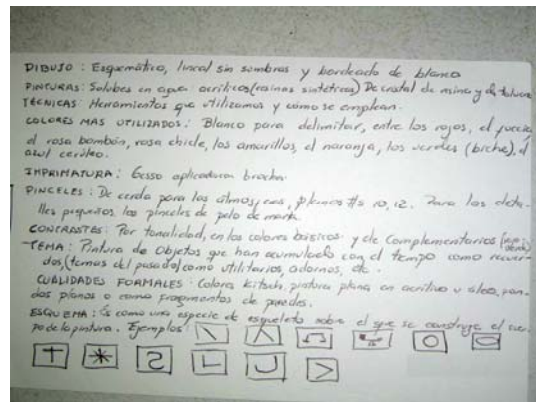 DIBUJO : Esquemático, lineal sin sombras y bordeado de blanco
PINTURAS: Solubes en agua acrílicos (resinas sintéticas) De cristal de mina y de
TÉCNICAS: Herramientos que utilizamos y cómo se emplean.
COLORES MAS UTILIZADOS: Blanco para delimitar, entre los rojos, el fuccia
el rosa bombón, rosa chicle, los amarillos, el naranja, los verdes (biche), el
azul cerúleo.
IMPRIMATURA: Gesso aplicado brocha.
PINCELES: De cerda para las planos #s 10, 12. Para los deta-
lles pequeños los pinceles de pelo de marta.
CONTRASTES: Por tonalidad, en los colores básicos y de Complementarios
TEMA: Pintura de Objetos que han acumulado con el tiempo como recuer-
dos, (temas del pasado) como utilitarios, adornos, etc.
CUALIDADES FORMALES: Colores kitsch, pintura plana en acrílico u oleo, fon-
dos planos o como fragmentos de paredes.
ESQUEMA: Es como una especie de esqueleto sobre el que se construye el cuer-
po de la pintura. Ejemplos: